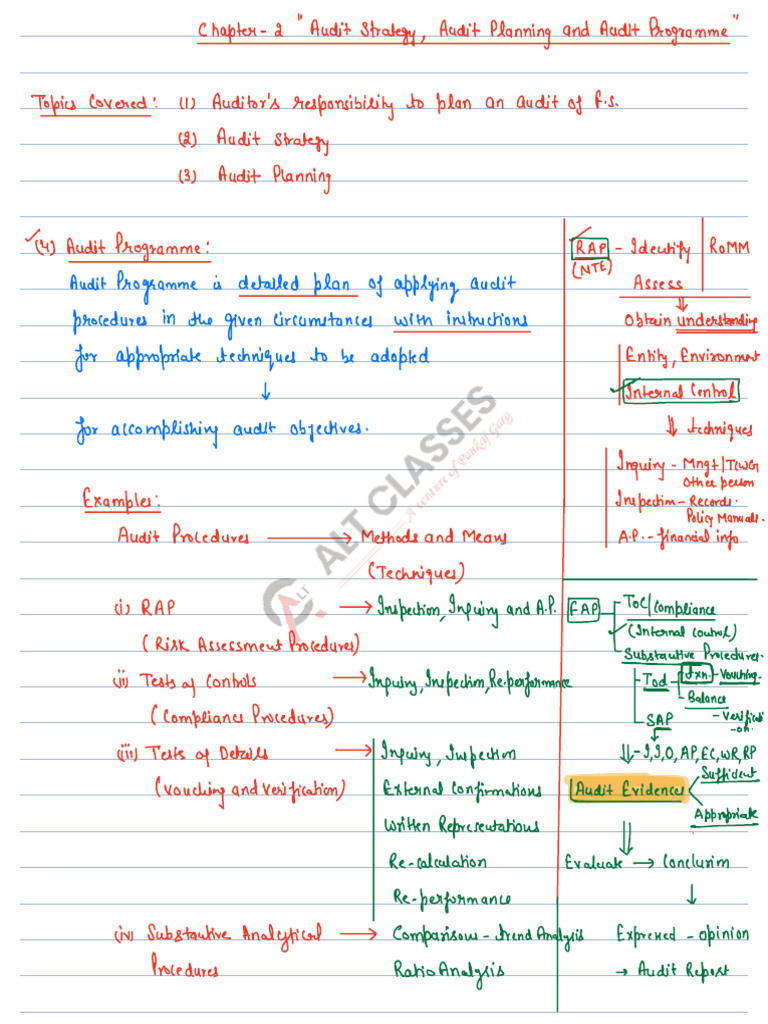 Chapter-2 "Audit Strategy, Audit Planning and Audit Programme"
Topics Covered: (1) Auditor's responsibility to plan an audit of F.S.
(2) Audit Strategy
(3) Audit Planning
(4) Audit Programme:
Audit Programme is detailed plan of applying audit
procedures in the given circumstances with instructions
for appropriate techniques to be adopted
↓
for accomplishing audit objectives.
Examples:
Audit Procedures → Methods and Means
(Techniques)
(i) RAP → Inspection, Inquiry and A.P.
(Risk Assessment Procedures)
(ii) Tests of Controls → Inquiry, Inspection, Re-performance
(Compliance Procedures)
(iii) Tests of Details → Inquiry, Inspection
(Vouching and Verification) External Confirmations
Written Representations
Re-calculation
Re-performance
(iv) Substantive Analytical → Comparisons - trend Analysis
Procedures Ratio Analysis
RAP - Identify RoMM
(NTE)
Assess
⇓
Obtain understanding
Entity, Environment
Internal Control
⇓ techniques
Inquiry - Mngt/TCWG
Other person
Inspection - Records.
Policy Manuals.
A.P. - financial info
FAP ToC/Compliance
(Internal control)
Substantive Procedures.
Tod - Txn. - Vouching.
Balance
- Verificati
-on.
SAP
⇓ - I, I, O, AP, EC, WR, RP
Sufficient
Audit Evidences
Appropriate
⇓
Evaluate → Conclusion
↓
Expressed - opinion
→ Audit Report
ALT CLASSES
A venture of Pankaj Garg
ALT